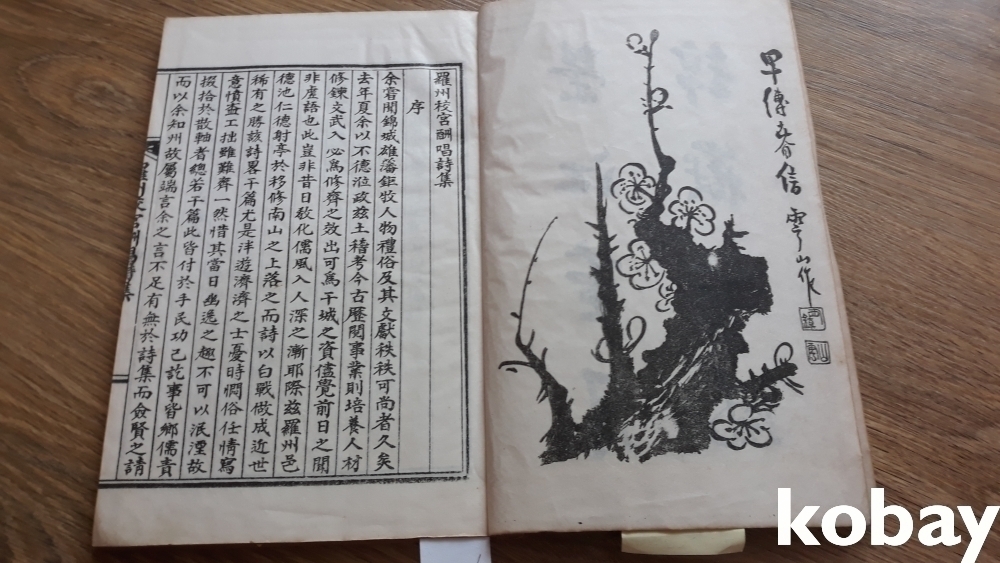 早傳春信 雪山作
羅州校宮酬唱詩集
序
余嘗聞錦城雄藩鉅牧人物禮俗及其文獻秩秩可尚者久矣
去年夏余以不德涖政玆土稽考今古歷閱事業則培養人材
修鍊文武入必爲修齊之效出可爲干城之資儘覺前日之聞
非虛語也此豈非昔日敎化儒風入人深之漸耶際玆羅州邑
德池仁德射亭於移修南山之上落之而詩以白戰做成近世
稀有之勝該詩畧干篇尤是泮遊濟濟之士憂時憫俗任情寫
意憤
工拙雖難齊一然惜其當日幽逸之趣不可以泯湮故
掇拾於散軸者總若干篇此皆付於手民功已訖事皆鄉儒責
而以余知州故屬端言余之言不足有無於詩集而僉賢之請
kobay